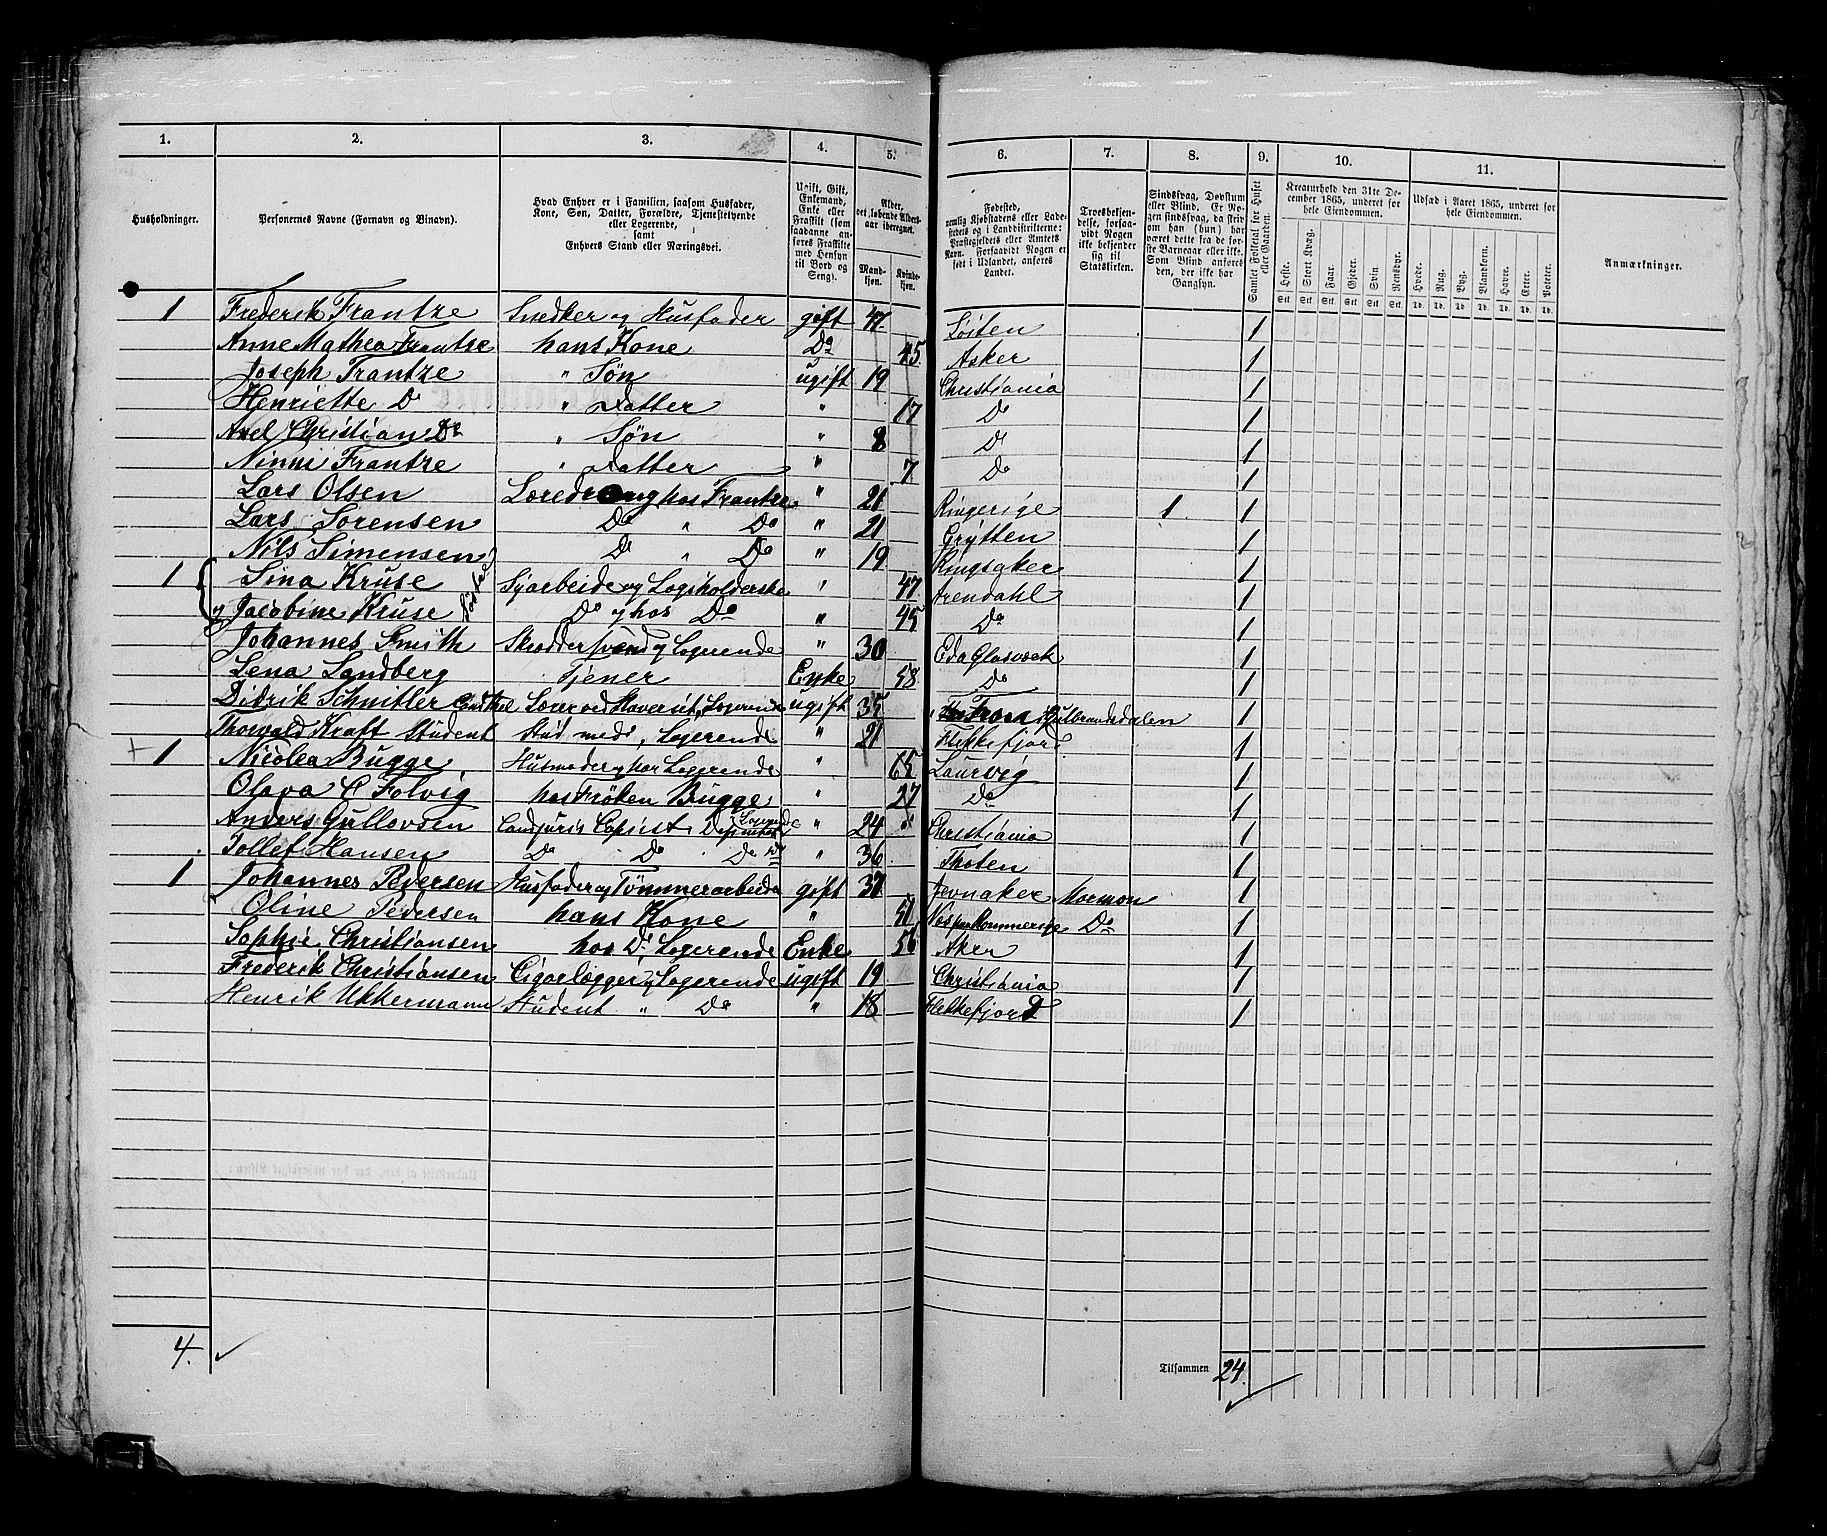 1. 2. 3. 4. 5. 6. 7. 8. 9. 10. 11.
Husholdninger.
Personernes Navne (Fornavn og Binavn).
Hvad Enhver er i Familien, saasom Husfader, Kone, Søn, Datter, Forældre, Tjenestetyende eller Logerende, samt Enhvers Stand eller Næringsvei.
Ugift, Gift, Enkemand, Enke eller Fraskilte (som saadanne anføres Fraskilte med Hensyn til Bord og Seng).
Alder, det løbende Alders-aar iberegnet.
Mand-kjøn. Kvinde-kjøn.
Fødested, nemlig Kjøbstadens eller Ladestedets og i Landdistrikterne: Præstegjeldets eller Amtets Navn. Forsaavidt Nogen er født i Udlandet, anføres Landet.
Troesbekjendelse, forsaavidt Nogen ikke bekjender sig til Statskirken.
Sindssvag, Døvstum eller Blind. Er Nogen sindssvag, da skrives om han (hun) har været dette fra de første Barneaar eller ikke. Som Blind anføres den, der ikke har Gangsyn.
Samlet Folketal for Huset eller Gaarden.
Kreaturhold den 31te December 1865, underet for hele Eiendommen.
Heste. Stort Kvæg. Faar. Gjeder. Svin. Rensdyr.
Udsæd i Aaret 1865, underet for hele Eiendommen.
Hvede. Rug. Byg. Blandkorn. Havre. Erter. Poteter.
Anmærkninger.
1 Frederik Frantze Snedker og Husfader gift 47 Løiten 1
Anne Mathea Frantze hans Kone Do 45 Asker 1
Joseph Frantze " Søn ugift 19 Christiania 1
Henriette Do " Datter " 17 Do 1
Axel Christian Do " Søn " 8 Do 1
Ninni Frantze " Datter " 7 Do 1
Lars Olsen Læredreng hos Frantze " 21 Ringerige 1 1
Lars Sørensen Do " Do " 21 Grytten 1
Nils Simensen Do " Do " 19 Ringsaker 1
1 Sina Kruse Syarbeide og Logiholderske " 47 Arendahl 1
og Jacobine Kruse Do og hos Do " 45 Do 1
Johannes Smith Skrædder svend og Logerende " 30 Eda Glasværk 1
Lena Sandberg Tjener Enke 58 Do 1
Didrik Schnitler Lærer ved Logerende ugift 35 Fron i Gulbrandsdalen 1
Thorvald Kraft Student Stud med, Logerende " 21 Flekkefjord 1
+ 1 Nicolea Bugge Husmoder og har Logerende " 65 Laurvig 1
Olava C Folvig hos Frøken Bugge " 27 Do 1
Anders Gullovsen Copiist Logerende " 24 Christiania 1
Tollef Hansen Do Do Do Do " 36 Thoten 1
1 Johannes Pedersen Husfader og Tømmerarbeide gift 37 Jevnaker Mormon 1
Oline Pedersen hans Kone " 51 Do 1
Sophie Christiansen hos Do Logerende Enke 56 Aker 1
Frederik Christiansen Cigarlægger og Logerende ugift 19 Christiania 1
Henrik Ukkermann Student " Do " 18 Flekkefjord 1
4.
Tilsammen 24.